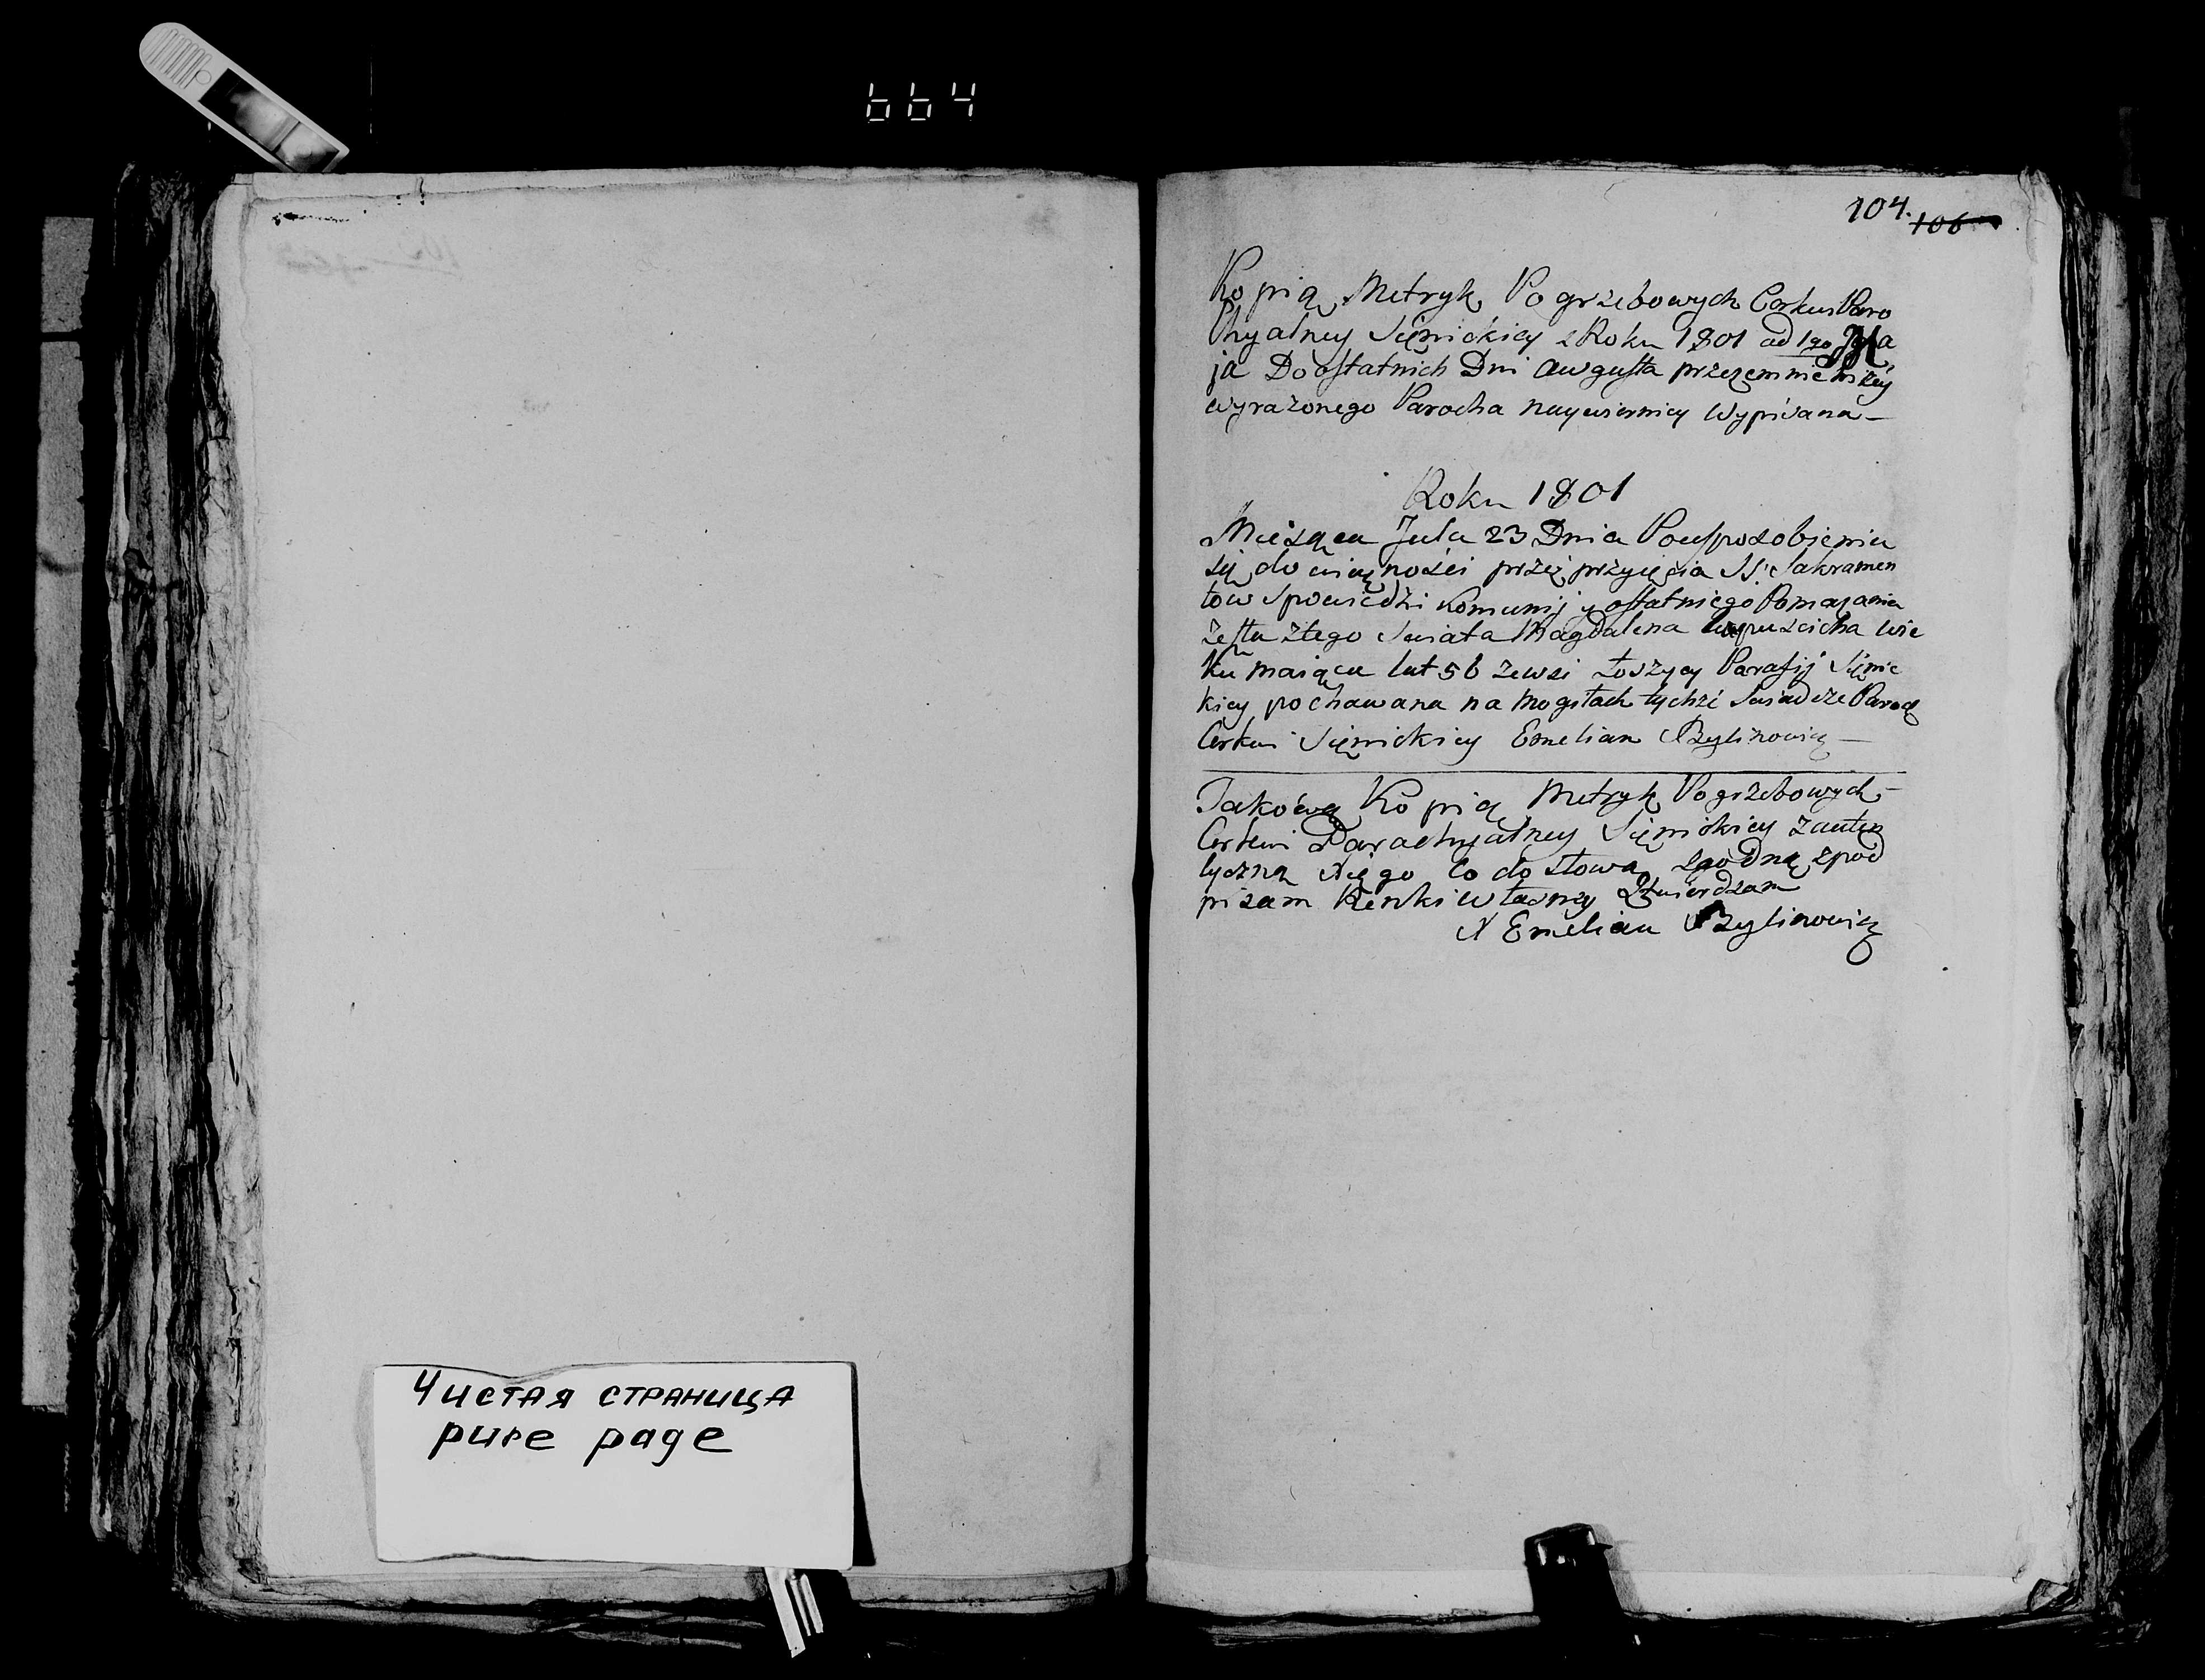 664
104. 106
Kopią Metryk Pogrzebowych Cerkwi Paro
chyalney Sięnickiey z Roku 1801 od 1go Ma
ja Do ostatnich Dni Augusta przezemnie niżey
wyrażonego Parocha naywierniey Wypisana –
Roku 1801
Miesąca Jula 23 Dnia Pousposobieniu
się do wiecznosci przez przyięcia SS. Sakramen
tow Spowiedzi Komunij y ostatniego Pomazania
zeszła z tego Swiata Magdalena wie
ku maiąca lat 56 zewsi Łoszycy Parafij Sięnic
kiey pochawana na mogiłach tychże Swiadcze Paroch
Cerkwi Sięnickiey Emelian Bylinowicz –
Takówą Kopią Metryk Pogrzebowych
Cerkwi Parachyalney Sięnickiey zauten
tyczną Xięgo Co do słowa zgodną zpod
pisam Renki własney Ztwierdzam
X Emelian Bylinowicz
Чистая страница
pure page